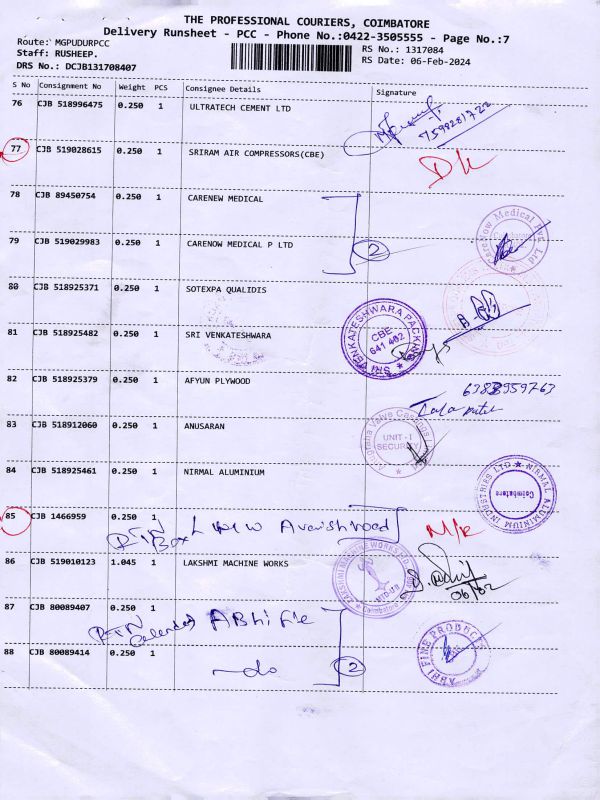 THE PROFESSIONAL COURIERS, COIMBATORE
Delivery Runsheet - PCC - Phone No.:0422-3505555 - Page No.:7
Route: MGPUDURPCC
Staff: RUSHEEP.
DRS No.: DCJB131708407
RS No.: 1317084
RS Date: 06-Feb-2024
S No Consignment No Weight PCS Consignee Details Signature
76 CJB 518996475 0.250 1 ULTRATECH CEMENT LTD
77 CJB 519028615 0.250 1 SRIRAM AIR COMPRESSORS(CBE)
78 CJB 89450754 0.250 1 CARENEW MEDICAL
79 CJB 519029983 0.250 1 CARENOW MEDICAL P LTD
2
80 CJB 518925371 0.250 1 SOTEXPA QUALIDIS
81 CJB 518925482 0.250 1 SRI VENKATESHWARA
SRI VENKATESHWARA PACKING
CBE
641 402
82 CJB 518925379 0.250 1 AFYUN PLYWOOD
83 CJB 518912060 0.250 1 ANUSARAN
UNIT - I
SECURITY
84 CJB 518925461 0.250 1 NIRMAL ALUMINIUM
NIRMAL ALUMINIUM INDUSTRIES LTD
Coimbatore
85 CJB 1466959 0.250 1
RTN
Box
86 CJB 519010123 1.045 1 LAKSHMI MACHINE WORKS
LAKSHMI MACHINE WORKS LTD
Coimbatore
06/02
87 CJB 80089407 0.250 1
RTN
Calender
ABhi Fie
88 CJB 80089414 0.250 1
do
2
ABHI FINE PRODUCTS